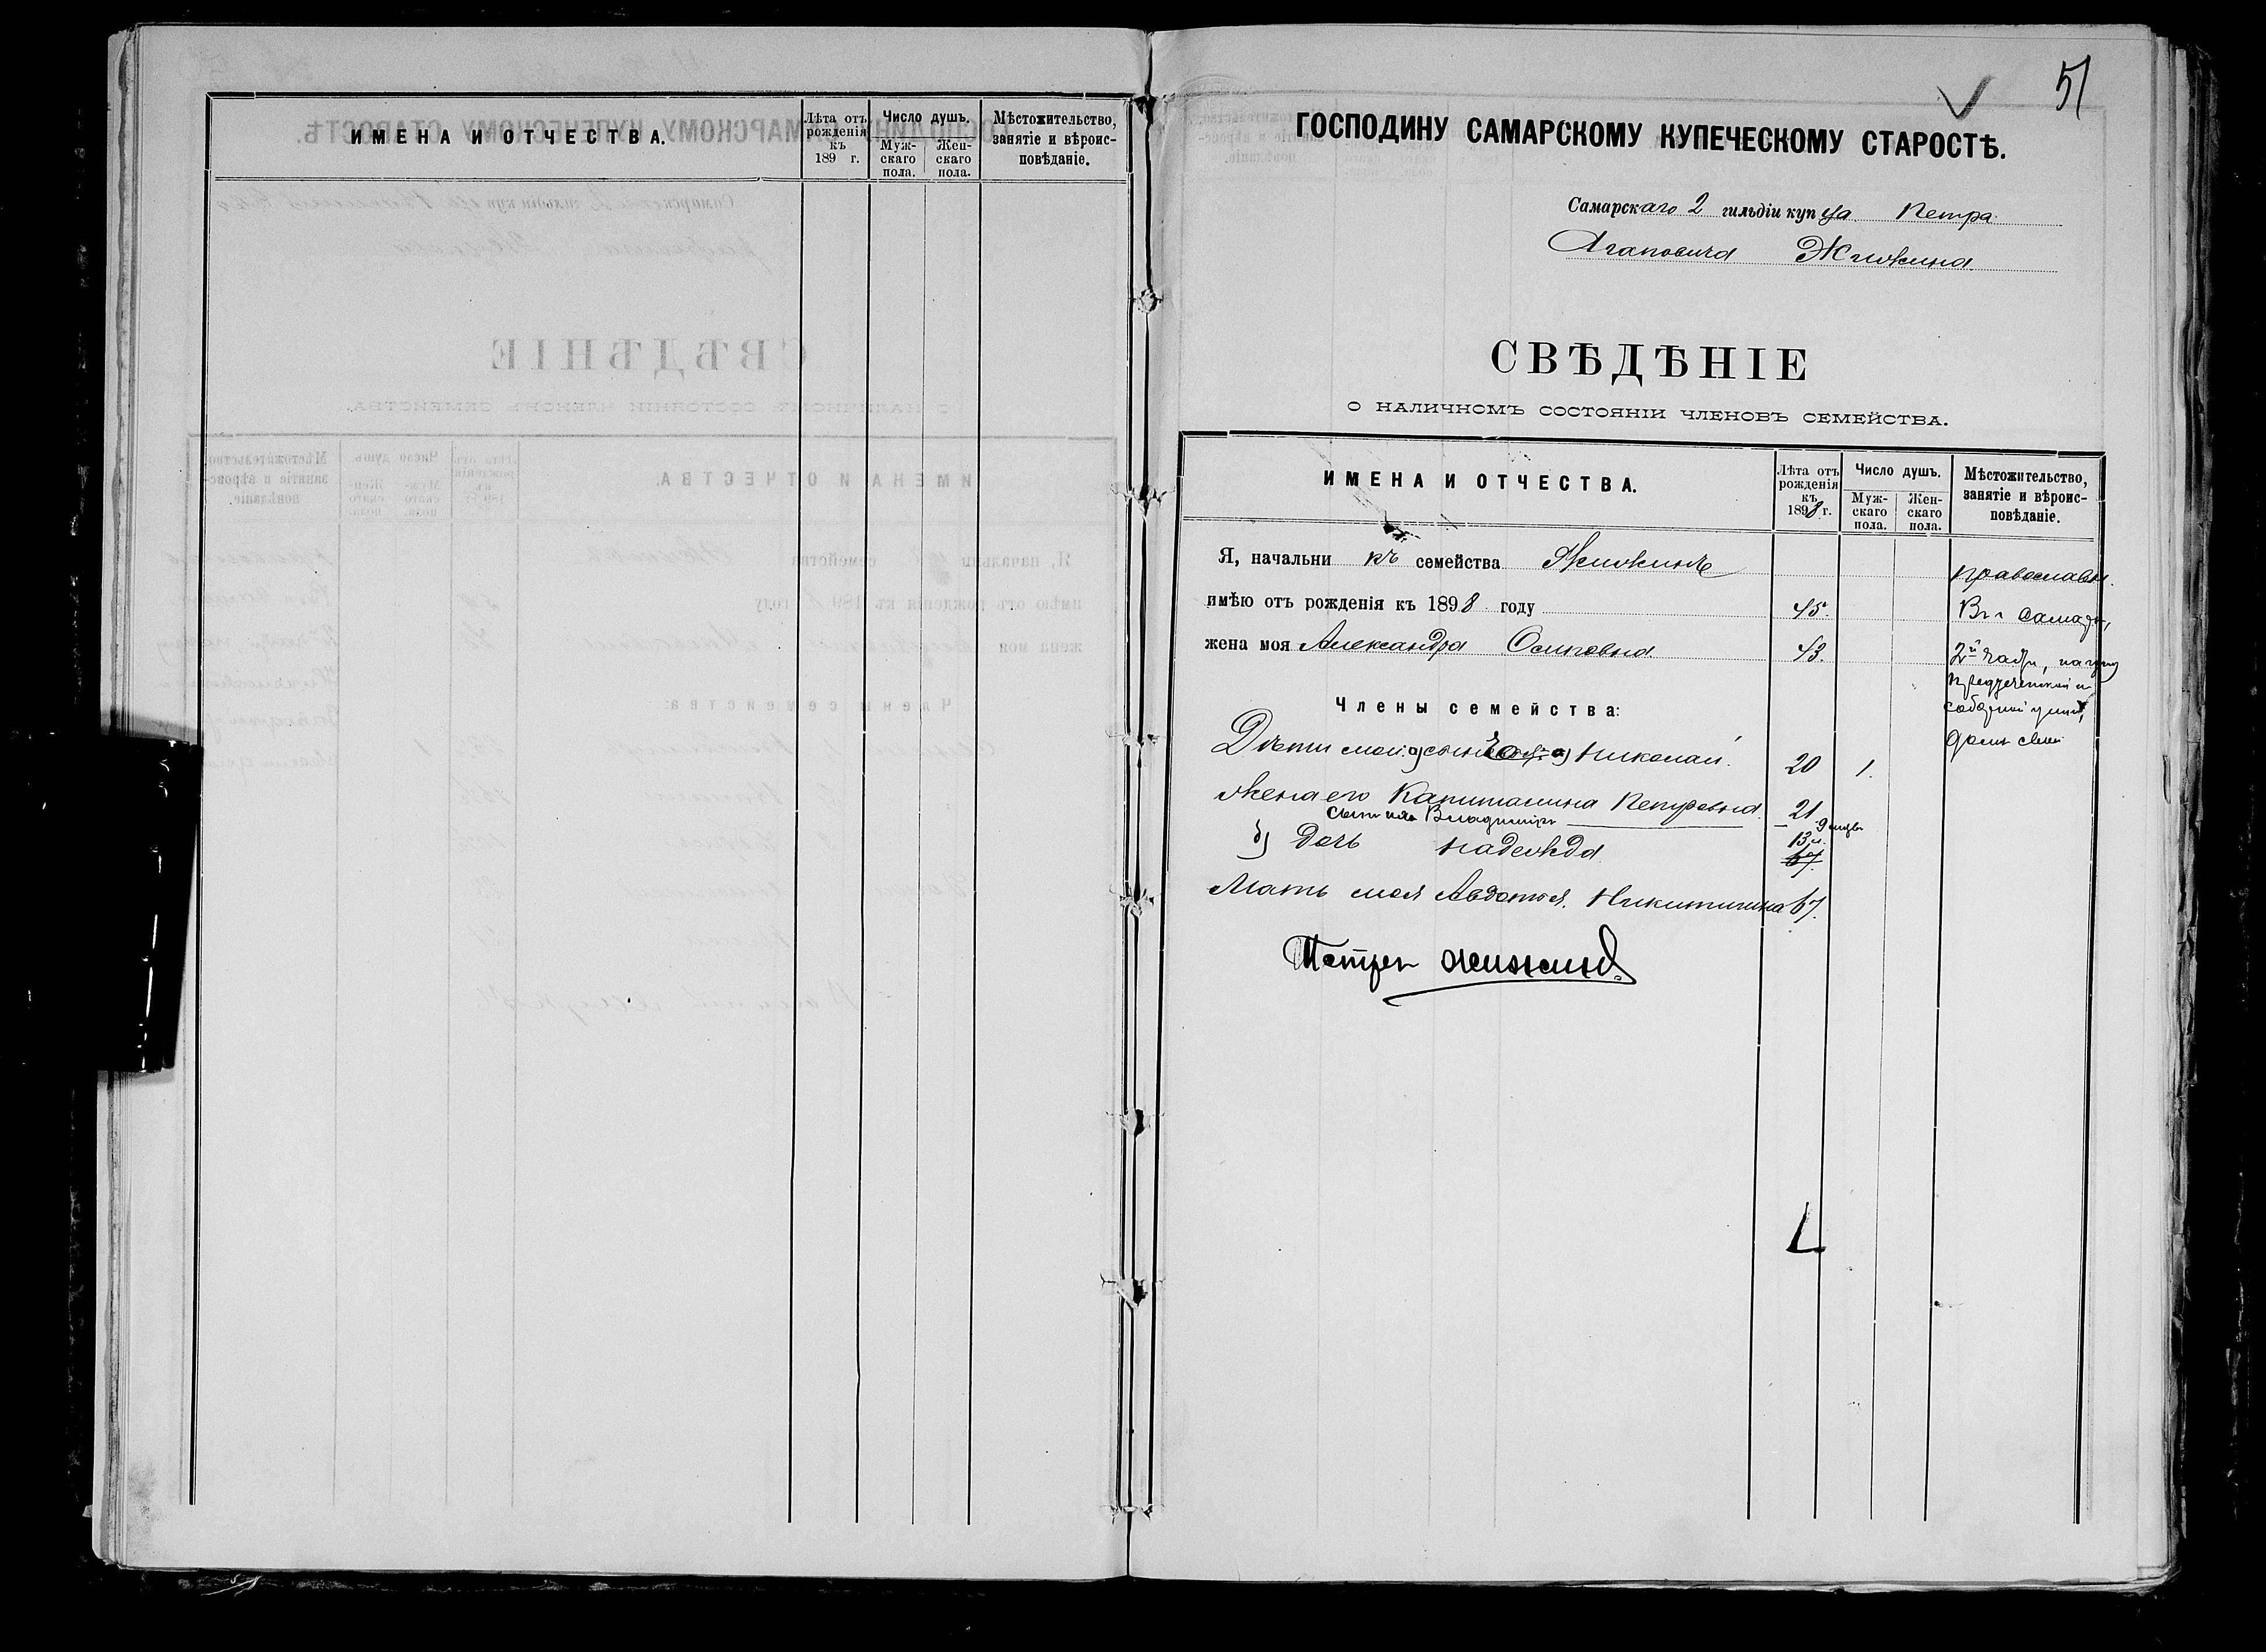 ИМЕНА И ОТЧЕСТВА.
Лѣта отъ рожденія къ 189 г.
Число душъ.
Мужскаго пола.
Женскаго пола.
Мѣстожительство, занятіе и вѣроисповѣданіе.
51
ГОСПОДИНУ САМАРСКОМУ КУПЕЧЕСКОМУ СТАРОСТѢ.
Самарскаго 2 гильдіи купца Петра
Агаповича
СВѢДѢНІЕ
О НАЛИЧНОМЪ СОСТОЯНІИ ЧЛЕНОВЪ СЕМЕЙСТВА.
ИМЕНА И ОТЧЕСТВА.
Лѣта отъ рожденія къ 1898 г.
Число душъ.
Муж-
скаго
пола.
Жен-
скаго
пола.
Мѣстожительство,
занятіе и вѣроис-
повѣданіе.
Я, начальникъ семейства
православн.
имѣю отъ рожденія къ 1898 году 45. Въ г Самарѣ,
жена моя Александра Осиповна 43. 2й части, на углу
Предтеченской и
Члены семейства:
соборной улицъ,
домъ свой
Дѣти мои: а) сынъ Николай. 20 1.
Жена его Капитолина Петровна 21
сынъ ихъ Владиміръ 9 мцвъ
б) Дочь Надежда 13 л.
67.
Мать моя Авдотья Никитична 67.
Петръ